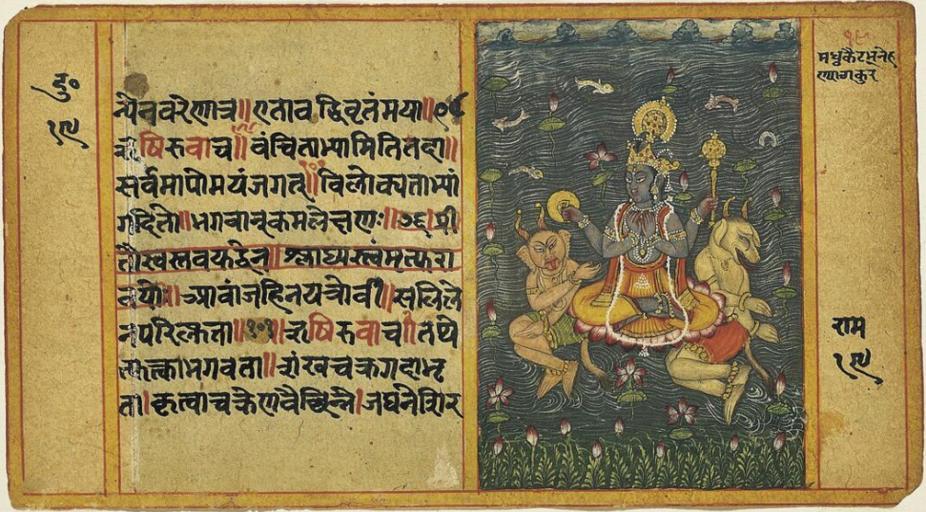 दु०
१९
न्येनवरेणात्र॥एतावद्धिवृतंमया॥
ऋषिरुवाच॥वंचिताभ्यामितितदा॥
सर्वमापोमयंजगत्॥विलोक्यताभ्यां
गदितो॥भगवान्कमलेक्षणः॥७६॥प्री
तौस्वस्तवयुद्धेन॥श्लाघ्यस्त्वंमृत्युरा
वयोः॥आवांजहिनयत्रोर्वी॥सलिले
नपरिप्लुता॥ऋषिरुवाच॥तथे
त्युक्त्वाभगवता॥शंखचक्रगदाभृ
ता।कृत्वाचक्रेणवैच्छिन्ने।जघनेशिर
राम
१९